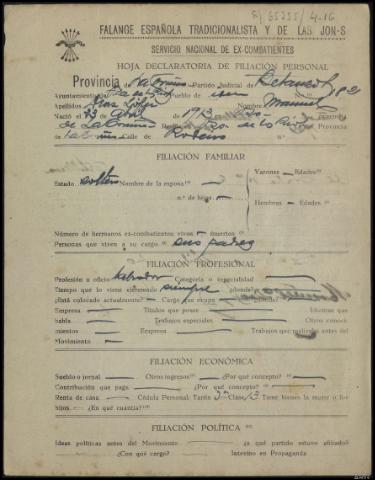 65255/4-16
FALANGE ESPAÑOLA TRADICIONALISTA Y DE LAS JON-S
SERVICIO NACIONAL DE EX-COMBATIENTES
HOJA DECLARATORIA DE FILIACION PERSONAL
Provincia de La Coruña Partido Judicial de Betanzos
Ayuntamiento de Pueblo de
Apellidos Nombre Manuel
Nació el 23 Abril 1913
de La Coruña Provincia
Calle de
FILIACIÓN FAMILIAR
Estado soltero Nombre de la esposa
Varones - Edades
n.º de hijos
Hembras - Edades
Número de hermanos ex-combatientes vivos muertos
Personas que viven a su cargo sus padres
FILIACIÓN PROFESIONAL
Profesión u oficio labrador Categoría o especialidad
Tiempo que lo viene ejerciendo siempre ¿dónde?
¿Está colocado actualmente? Cargo que ocupa
Empresa Títulos que posee Idiomas que
habla Trabajos especiales Otros conoci-
mientos Empresa Trabajos que realizaba antes del
Movimiento
FILIACIÓN ECONÓMICA
Sueldo o jornal Otros ingresos ¿Por qué concepto?
Contribución que paga ¿Por qué concepto?
Renta de casa Cédula Personal Tarifa 3ª Clase 13 Tiene bienes la mujer o los
hijos ¿En qué cuantía?
FILIACIÓN POLÍTICA
Ideas políticas antes del Movimiento ¿a qué partido estuvo afiliado?
¿Con qué cargo? Intervino en Propaganda